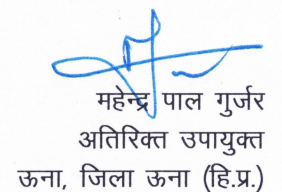 महेन्द्र पाल गुर्जर
अतिरिक्त उपायुक्त
ऊना, जिला ऊना (हि.प्र.)